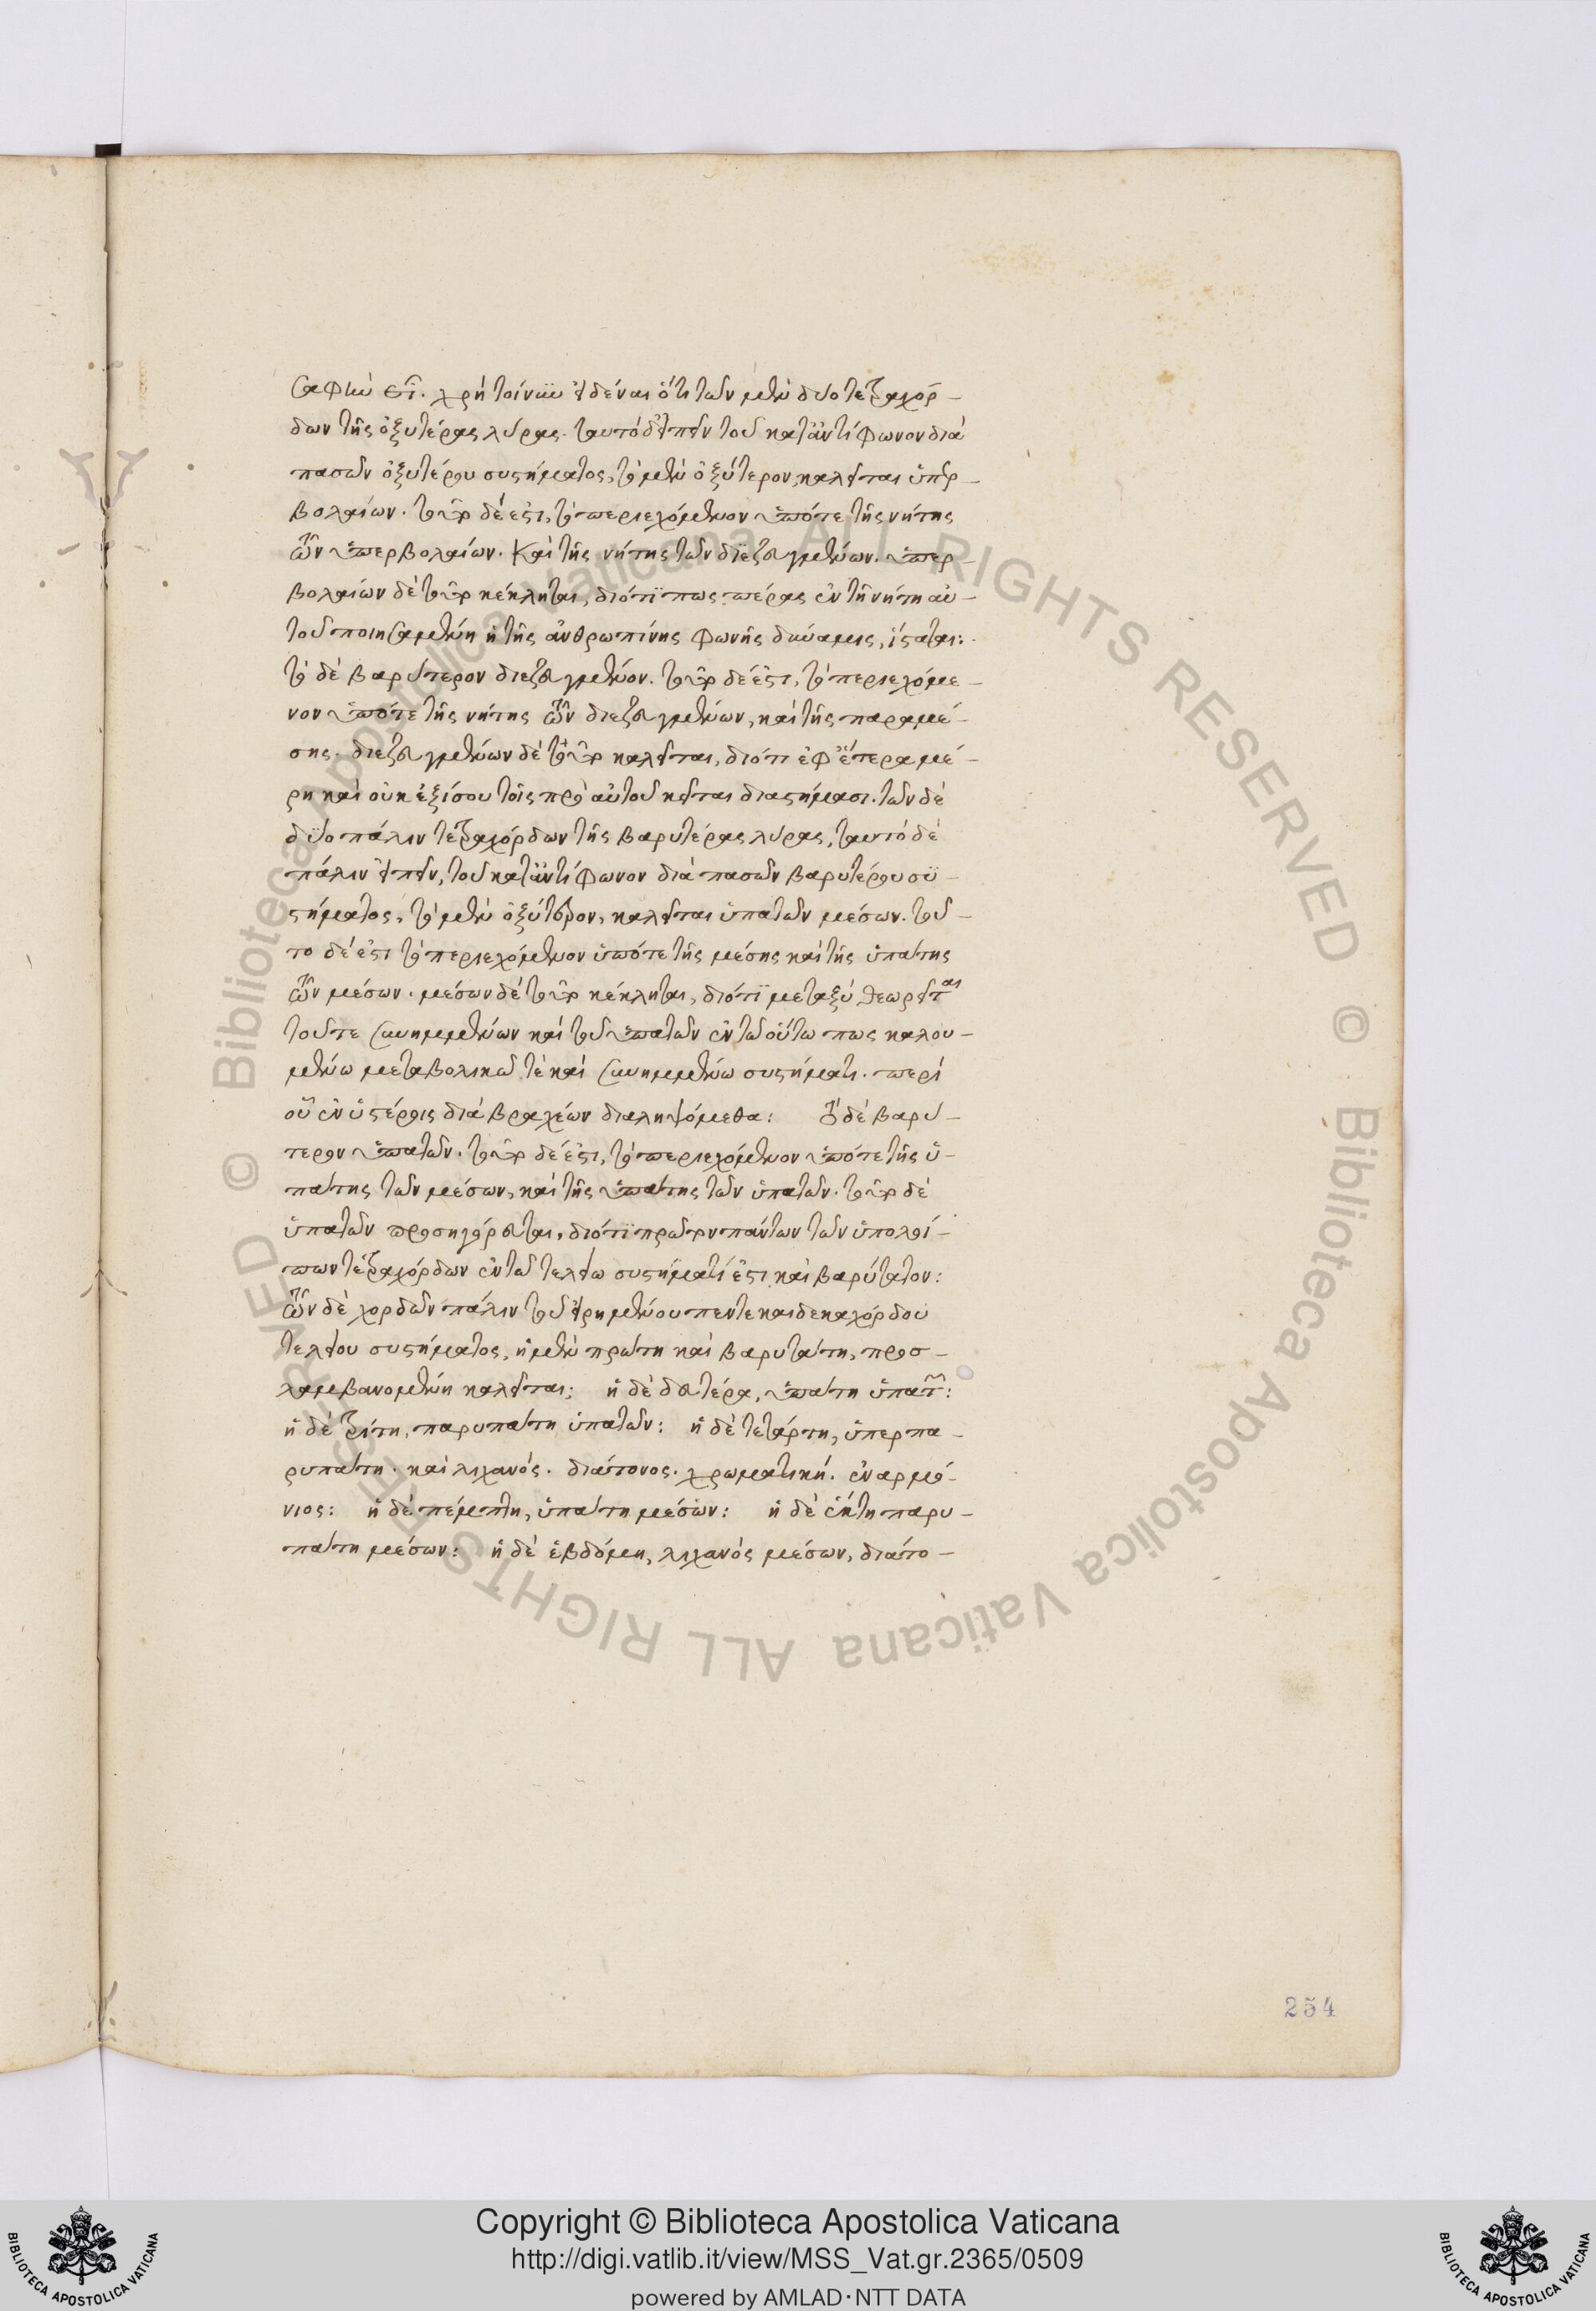 σαφὲς ἐστί. χρὴ τοίνυν εἰδέναι ὅτι τῶν μὲν δύο τετραχόρ-
δων τῆς ὀξυτέρας λύρας. ταυτὸ δ' εἰπεῖν τοῦ κατ' ἀντίφωνον διὰ
πασῶν ὀξυτέρου συστήματος, τὸ μὲν ὀξύτερον, καλεῖται ὑπερ-
βολαίων. τοῦτο δέ ἐστι, τὸ περιεχόμενον ὑπό τε τῆς νήτης
τῶν ὑπερβολαίων. καὶ τῆς νήτης τῶν διεζευγμένων. ὑπερ-
βολαίων δὲ τοῦτο κέκληται, διότι πως πέρας ἐν τῇ νήτῃ αὐ-
τοῦ ποιησαμένη ἡ τῆς ἀνθρωπίνης φωνῆς δύναμις, ἵσταται:
τὸ δὲ βαρύτερον διεζευγμένον. τοῦτο δέ ἐστι, τὸ περιεχόμε-
νον ὑπό τε τῆς νήτης τῶν διεζευγμένων, καὶ τῆς παραμέ-
σης. διεζευγμένων δὲ τοῦτο καλεῖται, διότι ἐφ' ἕτερα μέ-
ρη καὶ οὐκ ἐξίσου τοῖς πρὸ αὐτοῦ κεῖται διαστήμασι. τῶν δὲ
δύο πάλιν τετραχόρδων τῆς βαρυτέρας λύρας, ταυτὸ δὲ
πάλιν εἰπεῖν, τοῦ κατ' ἀντίφωνον διὰ πασῶν βαρυτέρου συ-
στήματος, τὸ μὲν ὀξύτερον, καλεῖται ὑπατῶν μέσων. τοῦ-
το δέ ἐστι τὸ περιεχόμενον ὑπό τε τῆς μέσης καὶ τῆς ὑπάτης
τῶν μέσων. μέσων δὲ τοῦτο κέκληται, διότι μεταξὺ θεωρεῖται
τοῦ τε συνημμένων καὶ τοῦ ὑπατῶν ἐν τῷ οὕτω πως καλου-
μένῳ μεταβολικῷ τὲ καὶ συνημμένῳ συστήματι. περὶ
οὗ ἐν ὑστέροις διὰ βραχέων διαληψόμεθα: Τὸ δὲ βαρύ-
τερον ὑπατῶν. τοῦτο δέ ἐστι, τὸ περιεχόμενον ὑπό τε τῆς ὑ-
πάτης τῶν μέσων, καὶ τῆς ὑπάτης τῶν ὑπατῶν. τοῦτο δὲ
ὑπατῶν προσηγόρευται, διότι πρῶτον πάντων τῶν ὑπολοί-
πων τετραχόρδων ἐν τῷ τελείῳ συστήματί ἐστι καὶ βαρύτατον:
τῶν δὲ χορδῶν πάλιν τοῦ εἰρημένου πεντεκαιδεκαχόρδου
τελείου συστήματος, ἡ μὲν πρώτη καὶ βαρυτάτη, προσ-
λαμβανομένη καλεῖται: ἡ δὲ δευτέρα, ὑπάτη ὑπατῶν:
ἡ δὲ τρίτη, παρυπάτη ὑπατῶν: ἡ δὲ τετάρτη, ὑπερπα-
ρυπάτη. καὶ λιχανός. διάτονος. χρωματική. ἐναρμό-
νιος: ἡ δὲ πέμπτη, ὑπάτη μέσων: ἡ δὲ ἕκτη παρυ-
πάτη μέσων: ἡ δὲ ἑβδόμη, λιχανὸς μέσων, διάτο-
254
© Biblioteca Apostolica Vaticana ALL RIGHTS RESERVED
© Biblioteca Apostolica Vaticana ALL RIGHTS RESERVED
Copyright © Biblioteca Apostolica Vaticana
http://digi.vatlib.it/view/MSS_Vat.gr.2365/0509
powered by AMLAD·NTT DATA
BIBLIOTECA APOSTOLICA VATICANA
BIBLIOTECA APOSTOLICA VATICANA